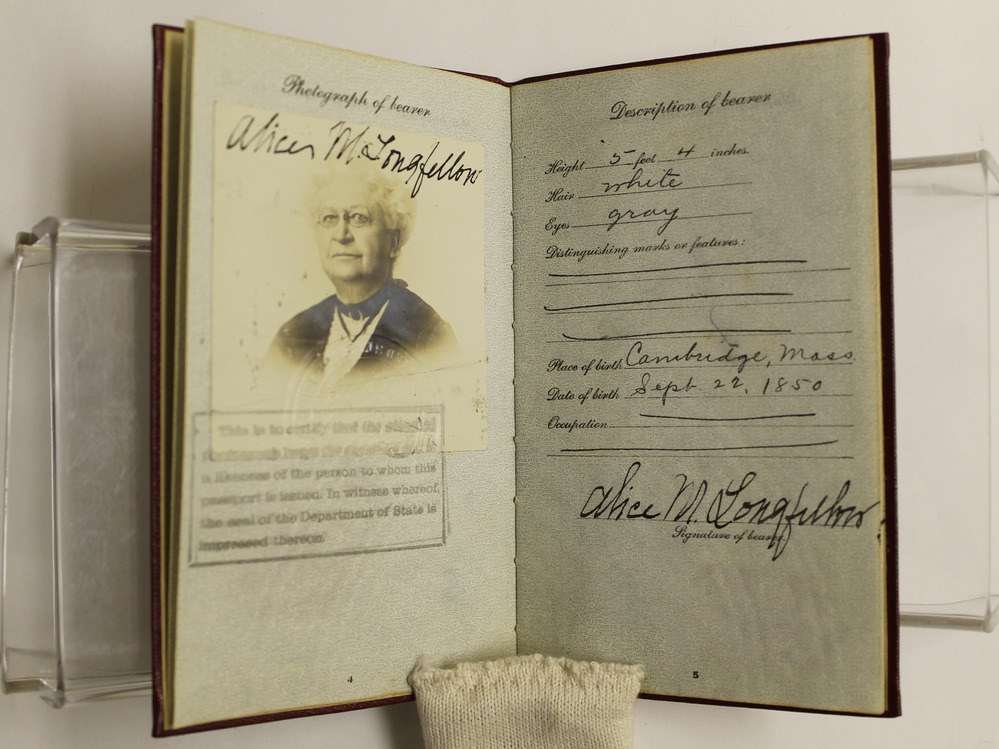 Photograph of bearer
Alice M. Longfellow
This is to certify that the
a likeness of the person to whom this
passport is issued. In witness whereof,
the seal of the Department of State is
impressed thereon.
4
Description of bearer
Height 5 feet 4 inches.
Hair white
Eyes gray
Distinguishing marks or features:
Place of birth Cambridge, Mass.
Date of birth Sept. 22, 1850
Occupation
Alice M. Longfellow
Signature of bearer.
5